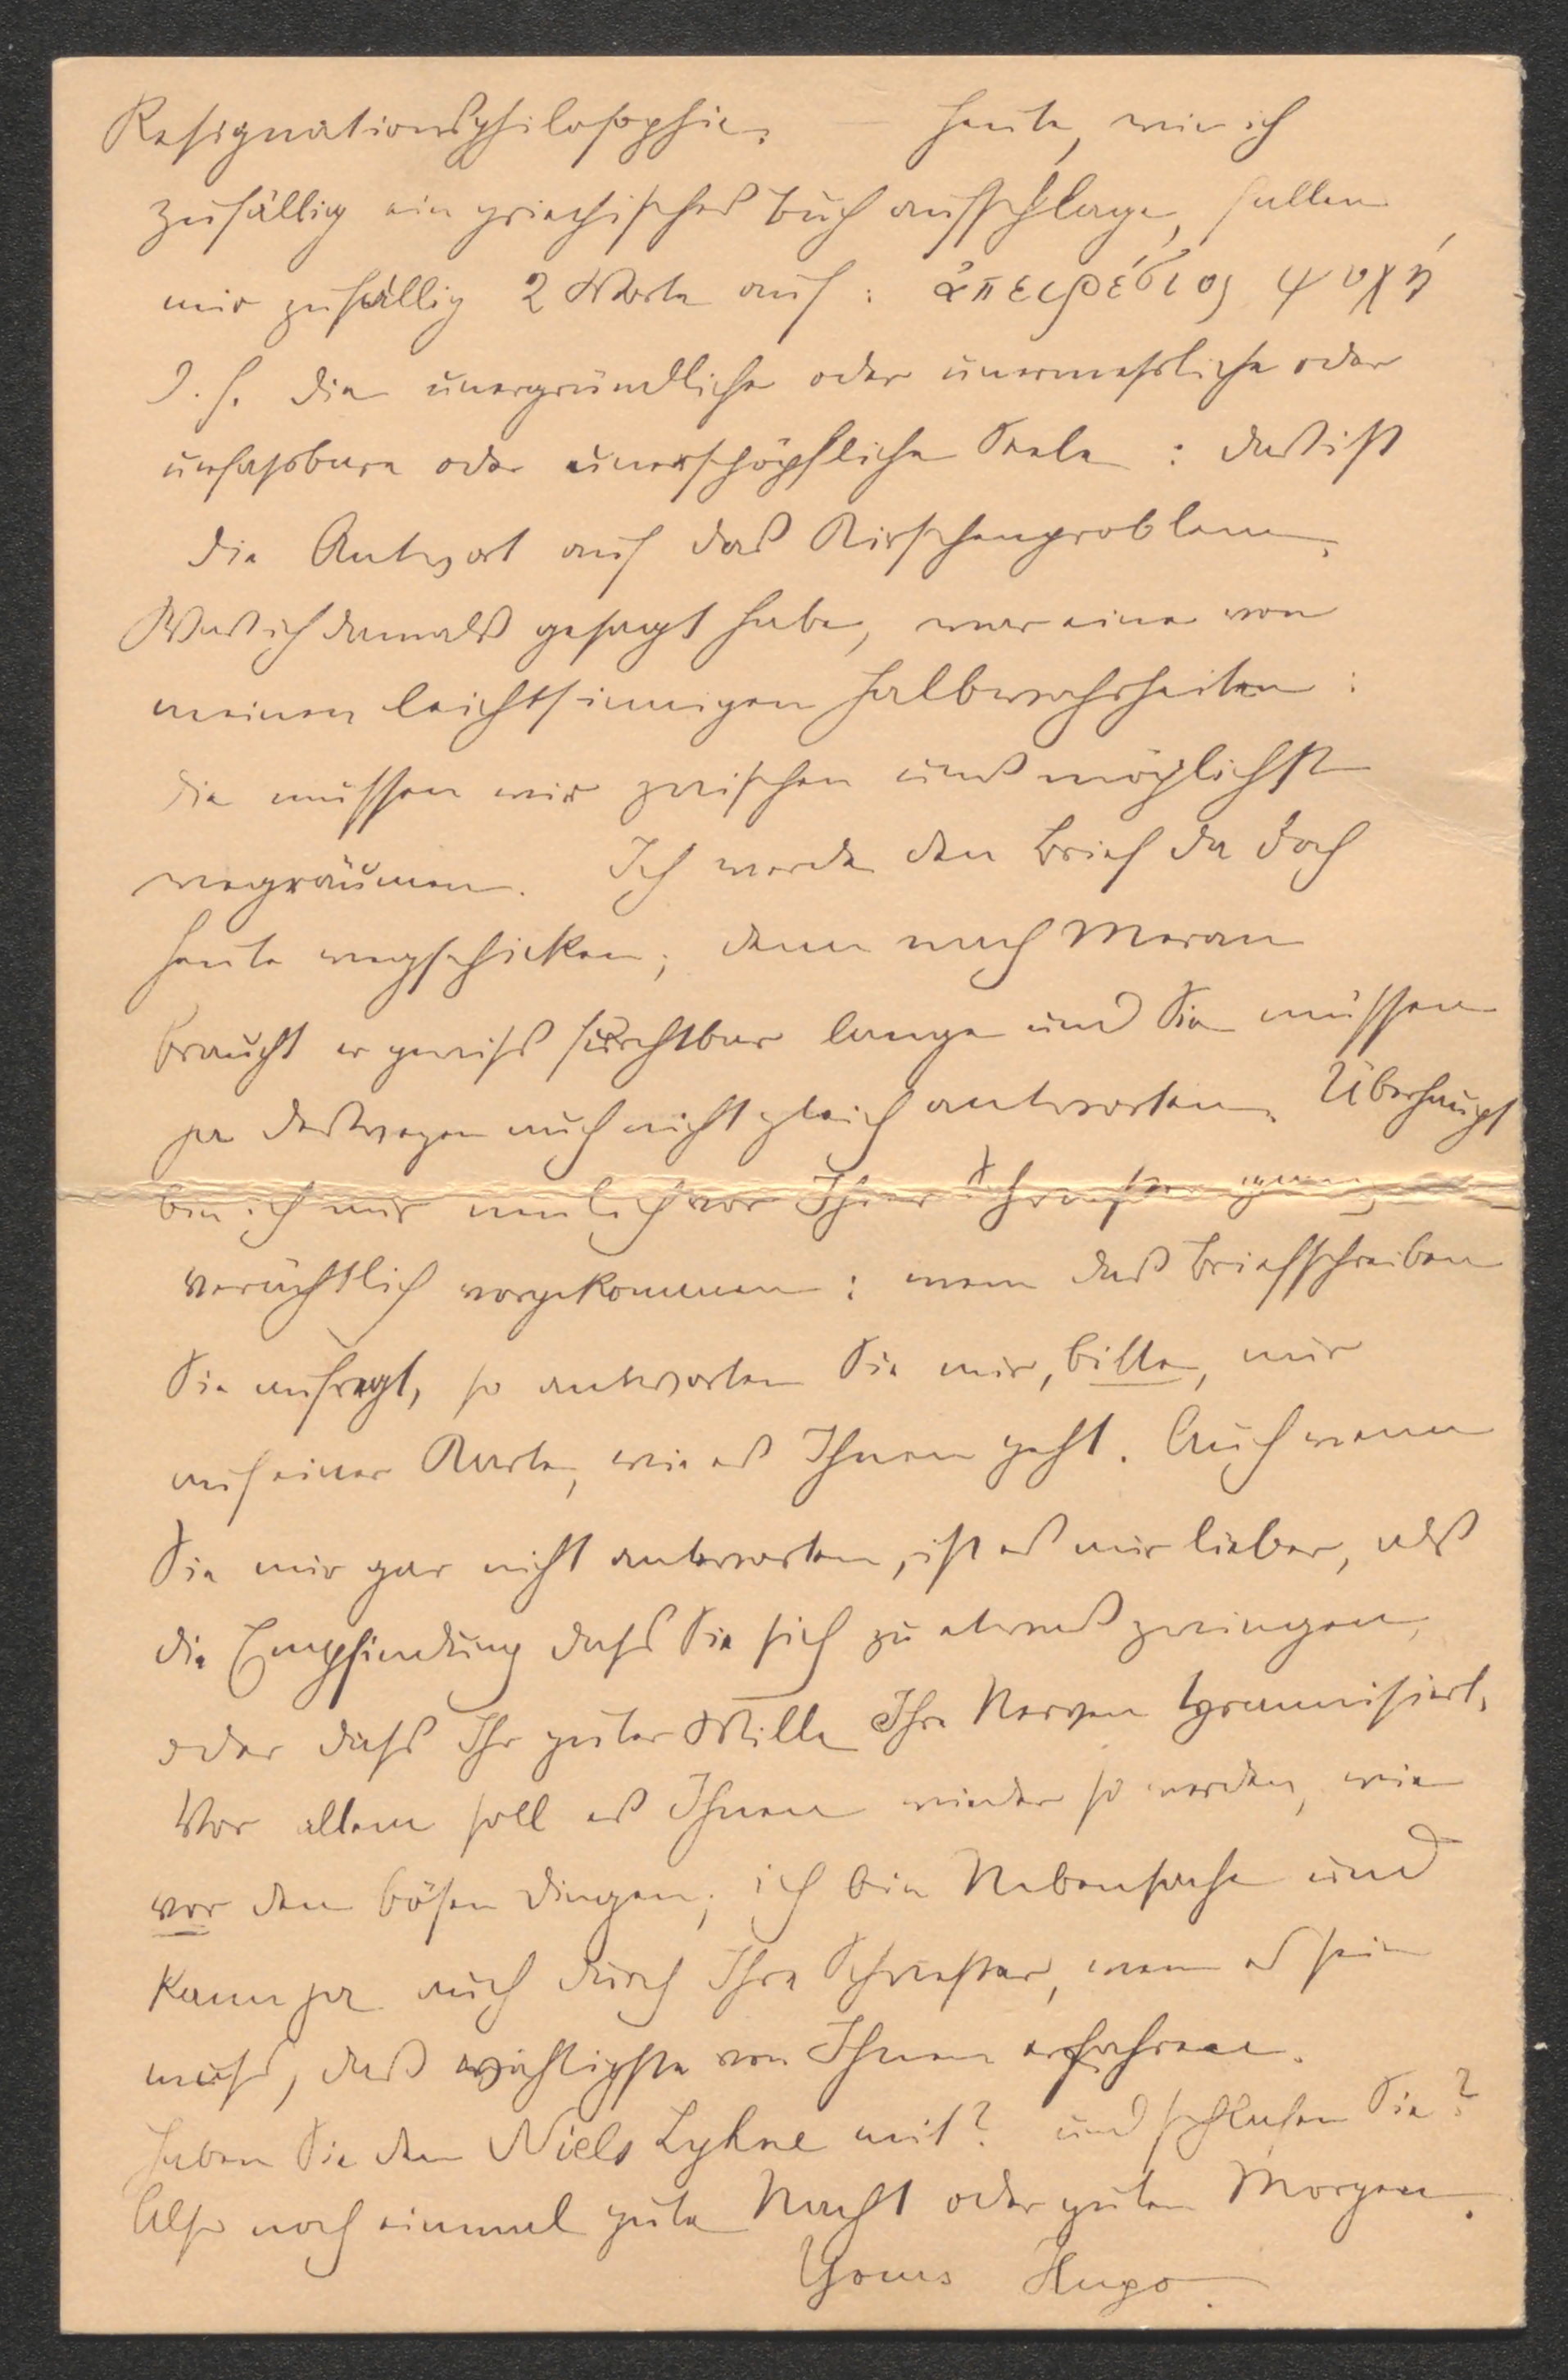 Resignationsphilosophie. — Heute, wie ich
zufällig ein griechisches Buch aufschlage, fallen
mir zufällig 2 Worte auf: ἀπειρέσιος ψυχή
d. h. die unergründliche oder unermessliche oder
unfassbare oder unerschöpfliche Seele: das ist
die Antwort auf das Kirschenproblem.
Was ich damals gesagt habe, war eine von
meinen leichtsinnigen Halbwahrheiten:
die müssen wir zwischen uns möglichst
wegräumen. Ich werde den Brief da doch
heute wegschicken; denn nach Meran
braucht er gewiss furchtbar lange und Sie müssen
ja deswegen auch nicht gleich antworten. Überhaupt
bin ich mir neulich vor Ihrer Schwester ganz
verächtlich vorgekommen: wenn das Briefschreiben
Sie aufregt, so antworten Sie mir, bitte, nur
auf einer Karte, wie es Ihnen geht. Auch wenn
Sie mir gar nicht antworten, ist es mir lieber, als
die Empfindung dass Sie sich zu etwas zwingen,
oder dass Ihr guter Wille Ihre Nerven tyrannisiert.
Vor allem soll es Ihnen wieder so werden, wie
vor den bösen Dingen; ich bin Nebensache und
kann ja auch durch Ihre Schwester, wenn es sein
muss, das wichtigste von Ihnen erfahren.
Haben Sie den Niels Lyhne mit? und schlafen Sie?
Also noch einmal gute Nacht oder guten Morgen.
Yours Hugo.